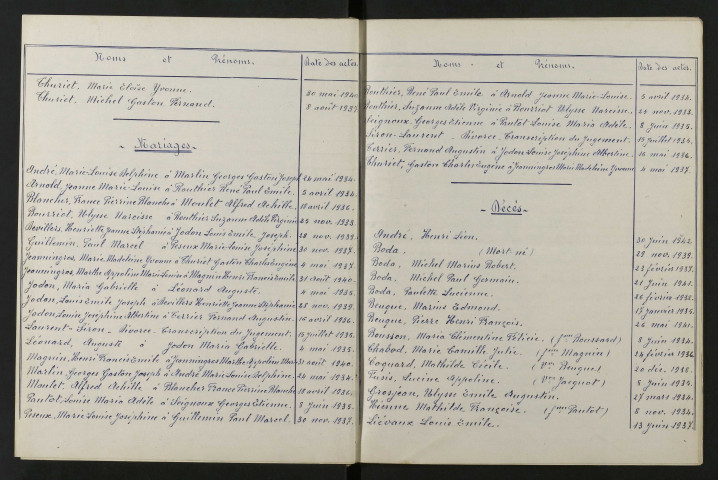 Noms et Prénoms.
Date des actes.
Thuriet, Marie Eloïse Yvonne.
30 mai 1940
Thuriet, Michel Gaston Fernand.
8 août 1937
- Mariages -
André, Marie-Louise Delphine à Martin Georges Gaston Joseph
26 mai 1934.
Arnold, Jeanne Marie-Louise à Routhier René Paul Emile.
3 avril 1934.
Blancher, France Perrine Blanche à Moulet Alfred Achille.
18 avril 1936.
Bourriot, Ulysse Narcisse à Routhier Suzanne Adèle Virginie
25 nov. 1933.
Devillers, Henriette Jeanne Stéphanie à Jodon Louis Emile Joseph.
28 nov. 1939.
Guillemin, Paul Marcel à Peseux Marie-Louise Joséphine
30 nov. 1937.
Jeanningros, Marie Madeleine Yvonne à Thuriet Gaston Charles Eugène
4 mai 1937.
Jeanningros, Marthe Appoline Marie Louise à Magnin Henri Francis Emile
31 août 1940.
Jodon, Maria Gabrielle à Léonard Auguste.
4 mai 1935.
Jodon, Louis Emile Joseph à Devillers Henriette Jeanne Stéphanie
28 nov. 1939.
Jodon, Louise Joséphine Albertine à Terrier Fernand Augustin.
16 avril 1936.
Laurent-Siron - Divorce - Transcription du Jugement.
15 juillet 1935.
Léonard, Auguste à Jodon Maria Gabrielle.
4 mai 1935.
Magnin, Henri Francis Emile à Jeanningros Marthe Appoline Marie
31 août 1940.
Martin, Georges Gaston Joseph à André Marie-Louise Delphine.
26 mai 1934.
Moulet, Alfred Achille à Blancher France Perrine Blanche
18 avril 1936.
Pautot, Louise Maria Adèle à Seignoux Georges Etienne.
8 Juin 1935.
Peseux, Marie-Louise Joséphine à Guillemin Paul Marcel.
30 nov. 1937.
Noms et Prénoms.
Date des actes.
Routhier, René Paul Emile à Arnold Jeanne Marie-Louise.
3 avril 1934.
Routhier, Suzanne Adèle Virginie à Bourriot Ulysse Narcisse.
25 nov. 1933.
Seignoux, Georges Etienne à Pautot Louise Maria Adèle.
8 Juin 1935.
Siron-Laurent - Divorce - Transcription du Jugement.
15 juillet 1935.
Terrier, Fernand Augustin à Jodon Louise Joséphine Albertine.
16 1936.
Thuriet, Gaston Charles Eugène à Jeanningros Marie Madeleine Yvonne
4 mai 1937.
- Décès -
André, Henri Léon.
30 Juin 1942.
Boda (Mort né)
29 nov. 1939.
Boda, Michel Marius Robert.
22 février 1937.
Boda, Michel Paul Germain.
21 Juin 1941.
Boda, Paulette Lucienne.
26 février 1936.
Beuque, Marius Edmond.
17 janvier 1935.
Beuque, Pierre Henri François.
26 mai 1941.
Bousson, Maria Clémentine Félicie. (fme Roussard)
3 Juin 1934.
Chabod, Marie Camille Julie. (fme Magnin)
24 février 1936.
Coquard, Mathilde Cécile. (Vve Beuque)
20 déc. 1938.
Fusis, Lucine Appoline. (Vve Jacquot)
8 Juin 1939.
Grosjean, Ulysse Emile Augustin.
27 mars 1934.
Mathilde Françoise. (fme Pautot)
8 nov. 1934.
Liévaux Louis Emile.
13 Juin 1937.